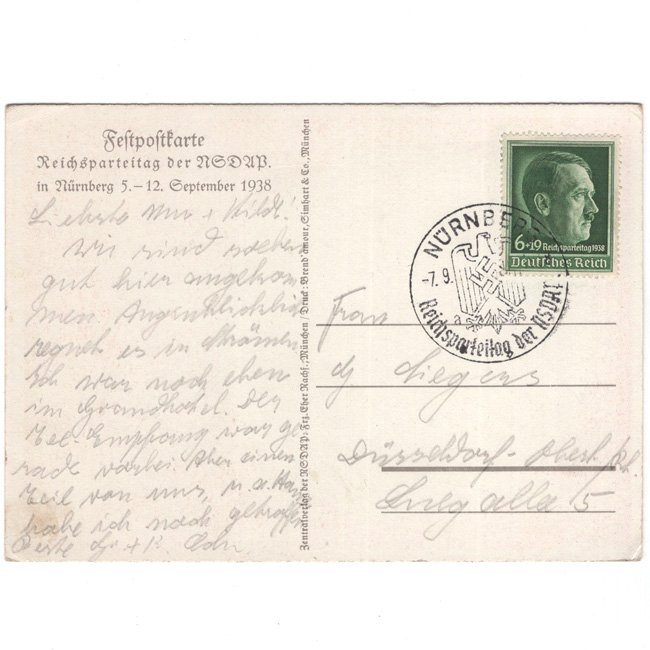 Festpostkarte
Reichsparteitag der NSDAP.
in Nürnberg 5.–12. September 1938
Wir sind soeben
gut hier angekom
men. Augenblicklich
regnet es in Strömen
Ich war noch eben
im Grandhotel. Der
Tel. Empfang war ge
rade vorbei. Aber einen
Teil von uns, u. a.
habe ich noch getroffen
Zentralverlag der NSDAP. Frz. Eher Nachf., München / Druck: Brend'amour, Simhart & Co., München
6+19 Reichsparteitag 1938
Deutsches Reich
NÜRNBERG
-7.9.
a
Reichsparteitag der NSDAP
Frau
Düsseldorf-
5